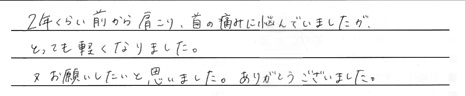 2年くらい前から肩こり、首の痛みに悩んでいましたが、
とっても軽くなりました。
又お願いしたいと思いました。ありがとうございました。